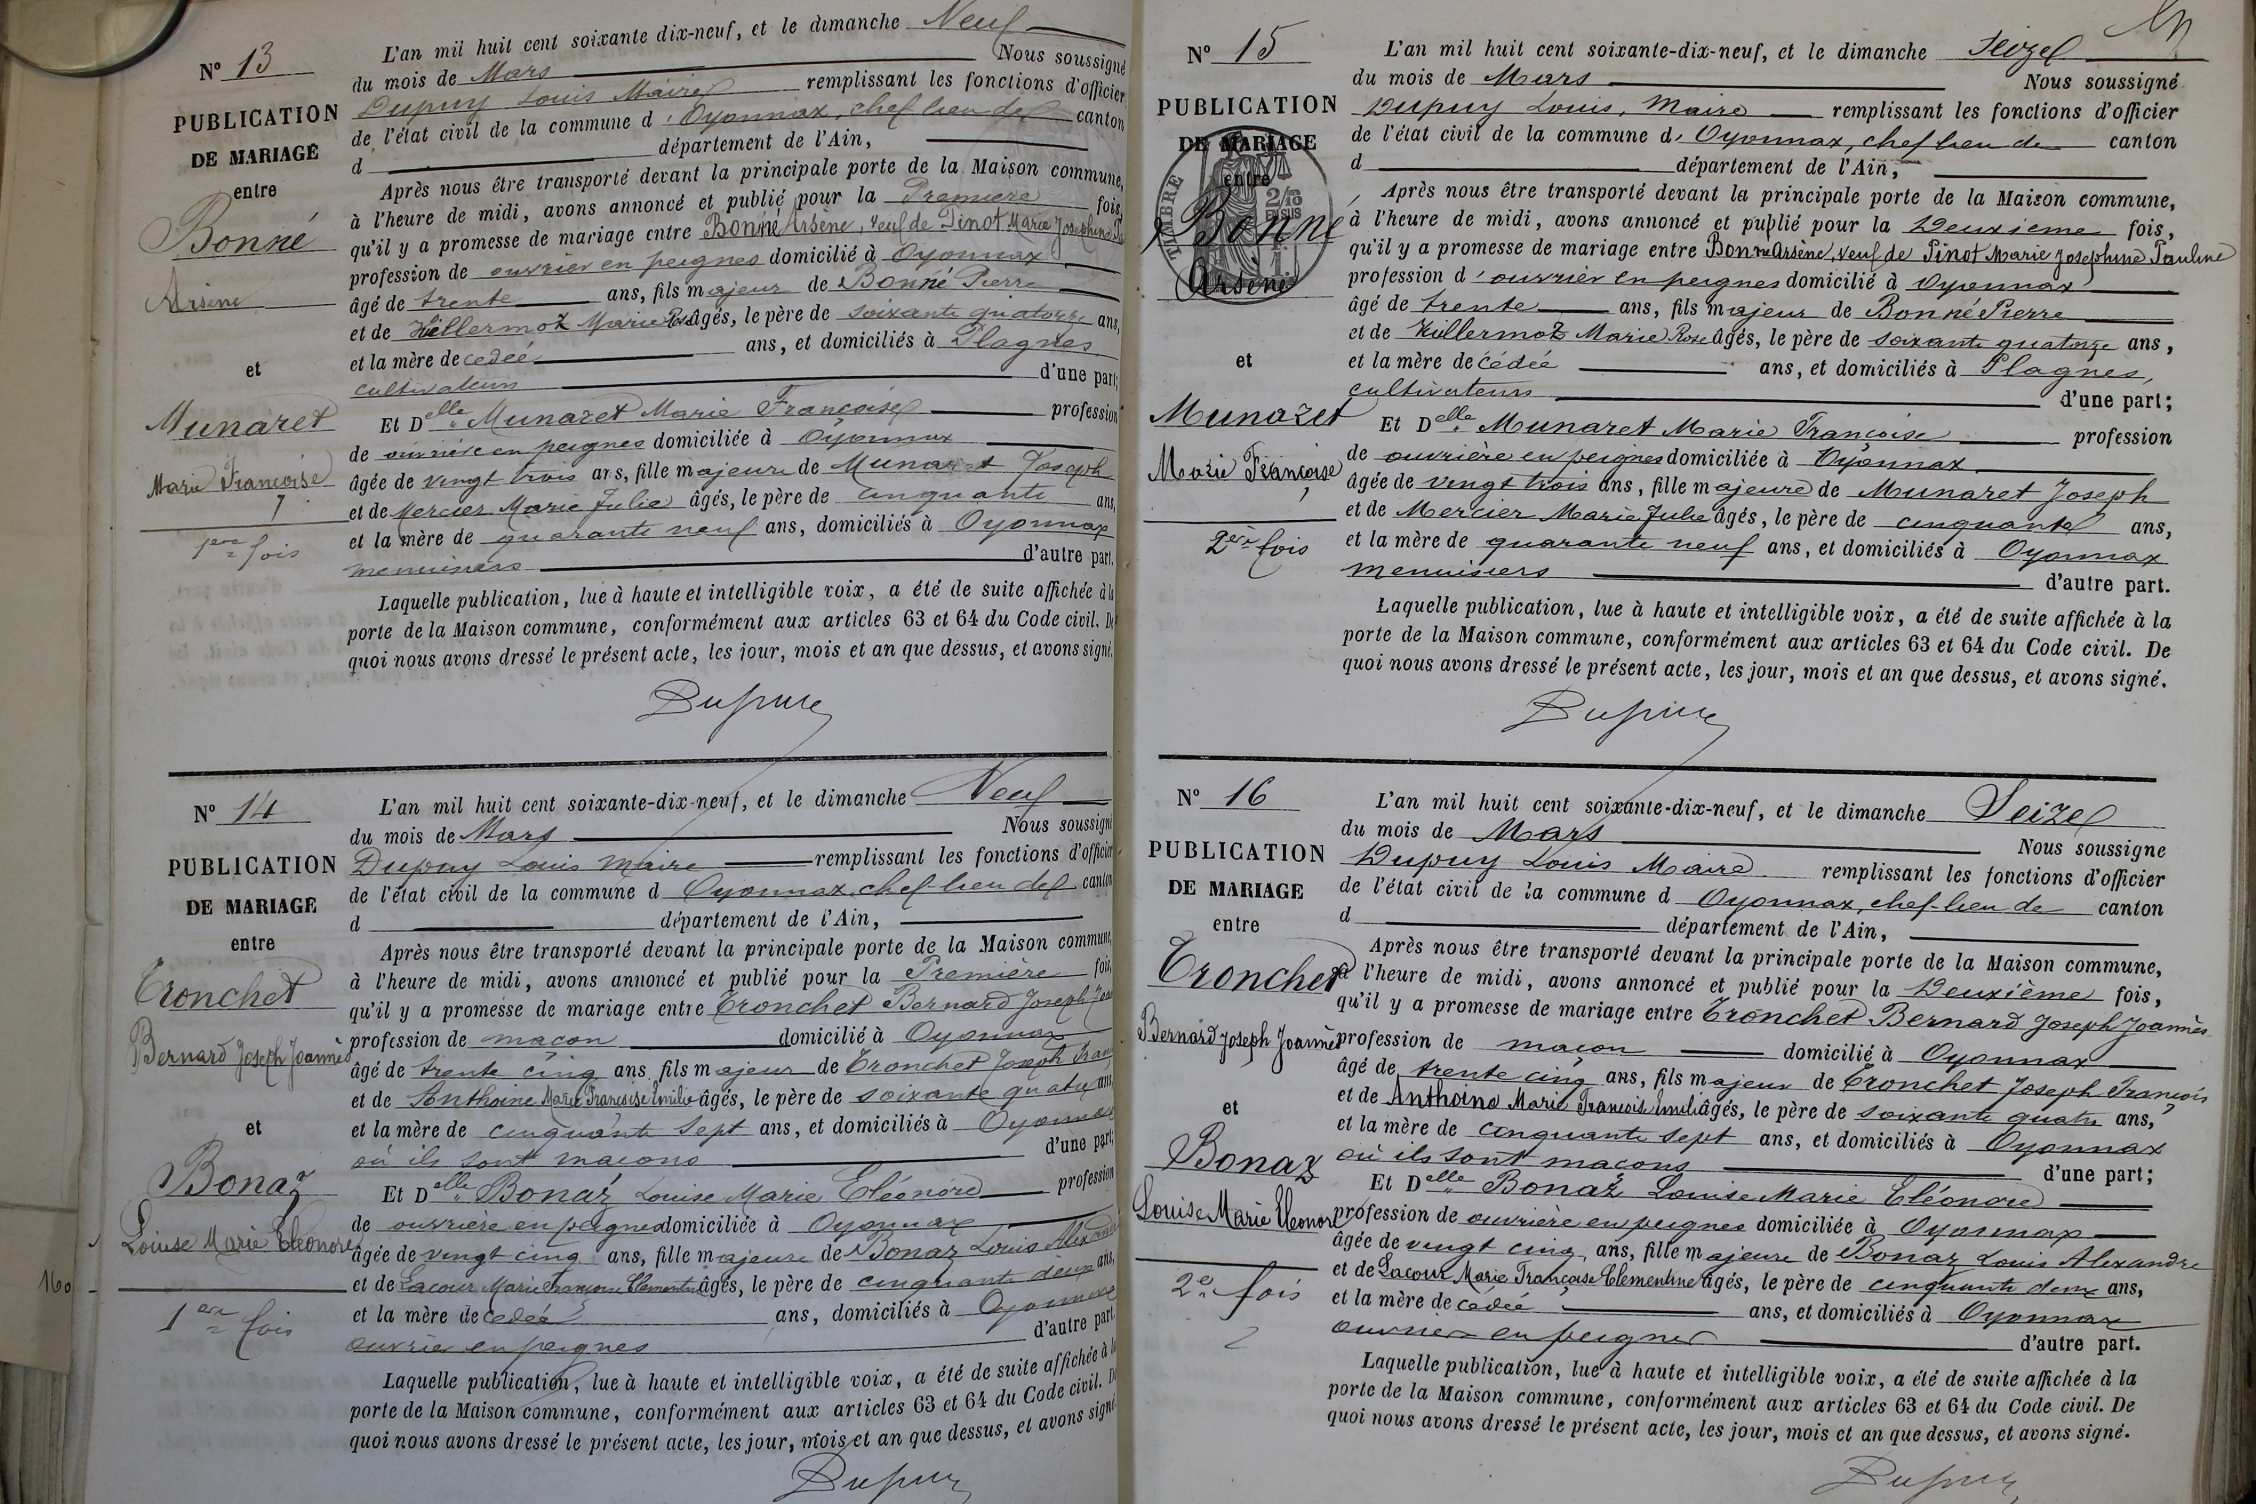 N° 13
PUBLICATION
DE MARIAGE
entre
Bonné
Arsène
et
Munaret
Marie Françoise
1ère fois
L'an mil huit cent soixante dix-neuf, et le dimanche Neuf
du mois de Mars Nous soussigné
Dupuy Louis Maire remplissant les fonctions d'officier
de l'état civil de la commune d'Oyonnax, chef lieu de canton
d département de l'Ain,
Après nous être transporté devant la principale porte de la Maison commune,
à l'heure de midi, avons annoncé et publié pour la Première fois,
qu'il y a promesse de mariage entre Bonné Arsène, veuf de Pinot Marie Josephine
profession de ouvrier en peignes domicilié à Oyonnax
âgé de trente ans, fils majeur de Bonné Pierre
et de Vuillermoz Marie Rose âgés, le père de soixante quatorze ans,
et la mère de cedeé ans, et domiciliés à Plagnes
cultivateurs d'une part;
Et Delle Munaret Marie Françoise profession
de ouvrière en peignes domiciliée à Oyonnax
âgée de vingt trois ans, fille majeure de Munaret Joseph
et de Mercier Marie Julie âgés, le père de cinquante ans,
et la mère de quarante neuf ans, domiciliés à Oyonnax
menuisiers d'autre part.
Laquelle publication, lue à haute et intelligible voix, a été de suite affichée à la
porte de la Maison commune, conformément aux articles 63 et 64 du Code civil. De
quoi nous avons dressé le présent acte, les jour, mois et an que dessus, et avons signé.
Dupuy
N° 14
PUBLICATION
DE MARIAGE
entre
Tronchet
Bernard Joseph Joannès
et
Bonaz
Louise Marie Eléonore
1ère fois
L'an mil huit cent soixante-dix-neuf, et le dimanche Neuf
du mois de Mars Nous soussigné
Dupuy Louis Maire remplissant les fonctions d'officier
de l'état civil de la commune d Oyonnax, chef-lieu de canton
d département de l'Ain,
Après nous être transporté devant la principale porte de la Maison commune,
à l'heure de midi, avons annoncé et publié pour la Première fois,
qu'il y a promesse de mariage entre Tronchet Bernard Joseph
profession de maçon domicilié à Oyonnax
âgé de trente cinq ans fils majeur de Tronchet Joseph Fran
et de Anthoine Marie Françoise Emilie âgés, le père de soixante quatre ans,
et la mère de cinquante sept ans, et domiciliés à Oyonnax
où ils sont maçons d'une part;
Et Delle Bonaz Louise Marie Eléonore profession
de ouvrière en peignes domiciliée à Oyonnax
âgée de vingt cinq ans, fille majeure de Bonaz Louis Alexandre
et de Lacour Marie Françoise Clementine âgés, le père de cinquante deux ans,
et la mère de cedeé ans, domiciliés à Oyonnax
ouvrier en peignes d'autre part.
Laquelle publication, lue à haute et intelligible voix, a été de suite affichée à la
porte de la Maison commune, conformément aux articles 63 et 64 du Code civil. D
quoi nous avons dressé le présent acte, les jour, mois et an que dessus, et avons signé
Dupuy
160
N° 15
PUBLICATION
DE MARIAGE
entre
TIMBRE
2/10
EN SUS
Bonné
Arsène
et
Munaret
Marie Françoise
2è fois
L'an mil huit cent soixante-dix-neuf, et le dimanche Seize
du mois de Mars Nous soussigné
Dupuy Louis, Maire remplissant les fonctions d'officier
de l'état civil de la commune d'Oyonnax, chef lieu de canton
d département de l'Ain,
Après nous être transporté devant la principale porte de la Maison commune,
à l'heure de midi, avons annoncé et publié pour la Deuxième fois,
qu'il y a promesse de mariage entre Bonné Arsène, veuf de Pinot Marie Josephine Pauline
profession d'ouvrier en peignes domicilié à Oyonnax
âgé de trente ans, fils majeur de Bonné Pierre
et de Vuillermoz Marie Rose âgés, le père de soixante quatorze ans,
et la mère de cédéé ans, et domiciliés à Plagnes,
cultivateurs d'une part;
Et Delle Munaret Marie Françoise profession
de ouvrière en peignes domiciliée à Oyonnax
âgée de vingt trois ans, fille majeure de Munaret Joseph
et de Mercier Marie Julie âgés, le père de cinquante ans,
et la mère de quarante neuf ans, et domiciliés à Oyonnax
menuisiers d'autre part.
Laquelle publication, lue à haute et intelligible voix, a été de suite affichée à la
porte de la Maison commune, conformément aux articles 63 et 64 du Code civil. De
quoi nous avons dressé le présent acte, les jour, mois et an que dessus, et avons signé.
Dupuy
N° 16
PUBLICATION
DE MARIAGE
entre
Tronchet
Bernard Joseph Joannès
et
Bonaz
Louise Marie Eleonore
2e fois
L'an mil huit cent soixante-dix-neuf, et le dimanche Seize
du mois de Mars Nous soussigne
Dupuy Louis Maire remplissant les fonctions d'officier
de l'état civil de la commune d Oyonnax, chef lieu de canton
d département de l'Ain,
Après nous être transporté devant la principale porte de la Maison commune,
à l'heure de midi, avons annoncé et publié pour la Deuxième fois,
qu'il y a promesse de mariage entre Tronchet Bernard Joseph Joannès
profession de maçon domicilié à Oyonnax
âgé de trente cinq ans, fils majeur de Tronchet Joseph François
et de Anthoine Marie François Emilie âgés, le père de soixante quatre ans,
et la mère de cinquante sept ans, et domiciliés à Oyonnax
où ils sont maçons d'une part;
Et Delle Bonaz Louise Marie Eléonore
profession de ouvrière en peignes domiciliée à Oyonnax
âgée de vingt cinq ans, fille majeure de Bonaz Louis Alexandre
et de Lacour Marie Françoise Clementine âgés, le père de cinquante deux ans,
et la mère de cédéé ans, et domiciliés à Oyonnax
ouvrier en peignes d'autre part.
Laquelle publication, lue à haute et intelligible voix, a été de suite affichée à la
porte de la Maison commune, conformément aux articles 63 et 64 du Code civil. De
quoi nous avons dressé le présent acte, les jour, mois et an que dessus, et avons signé.
Dupuy